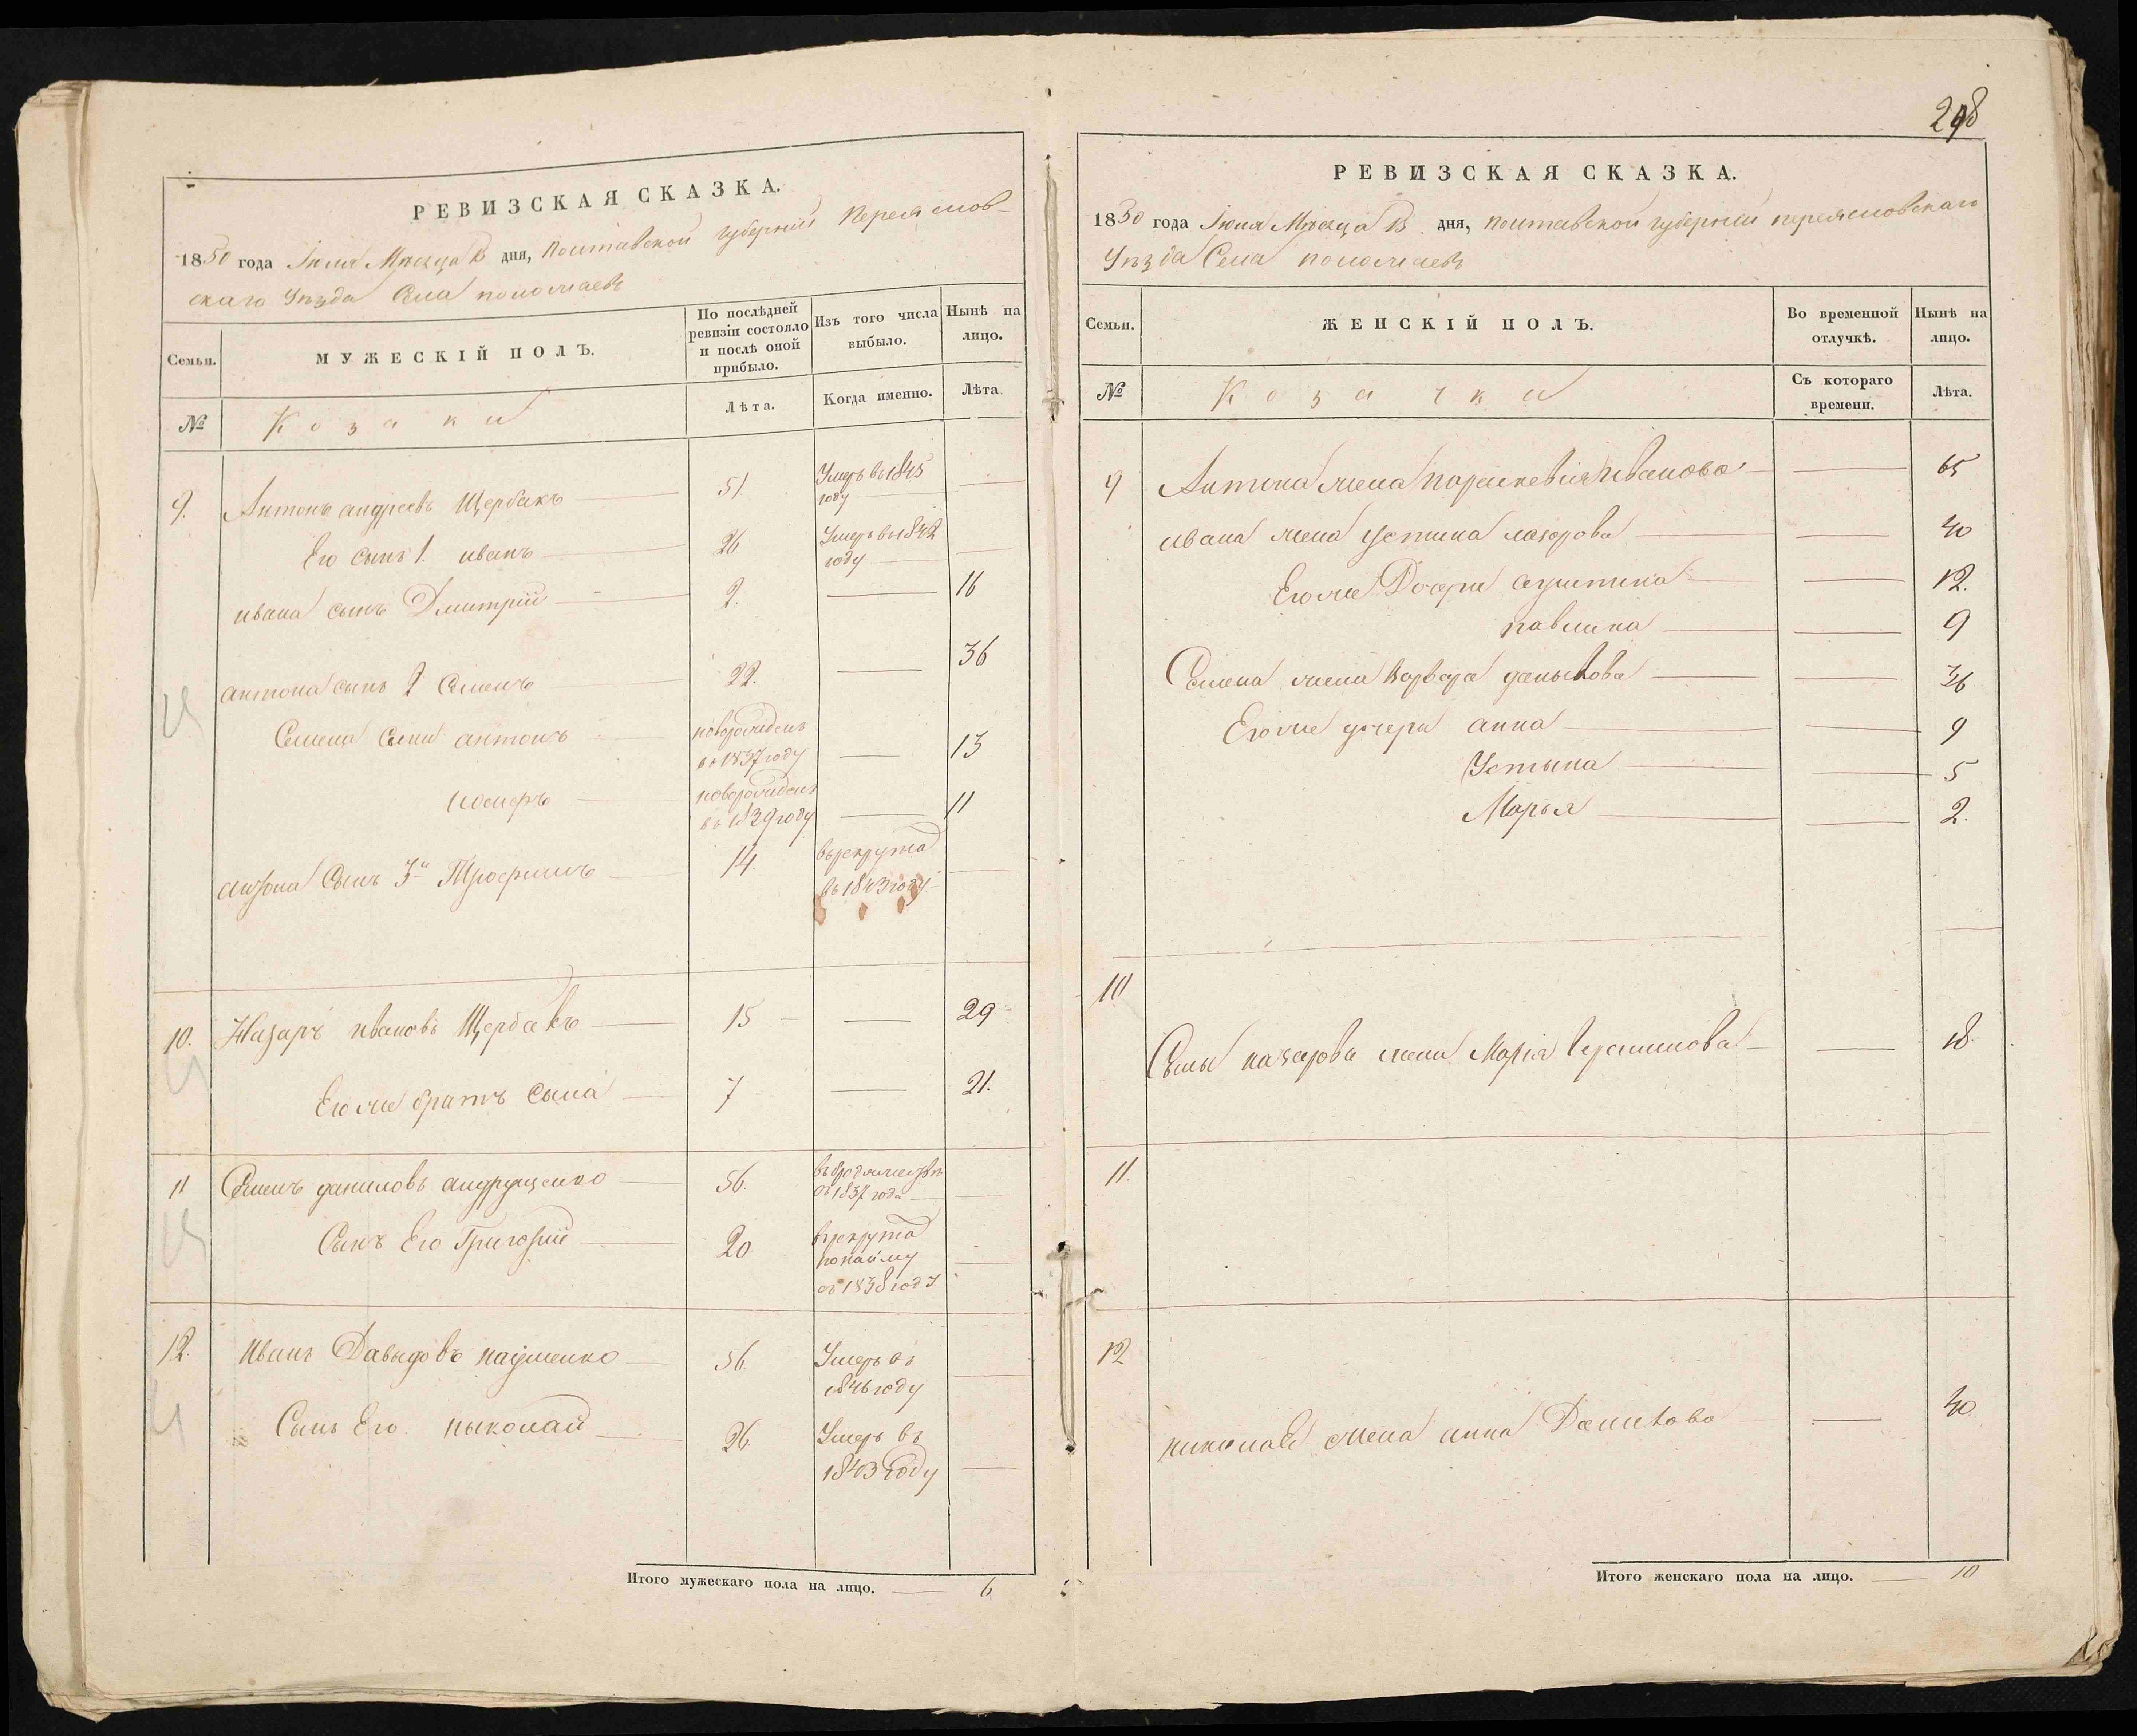 298
РЕВИЗСКАЯ СКАЗКА.
1850 года Іюля Мѣсяца дня, Полтавской губерніи Переяслов-
скаго Уѣзда Села
Семьи.
МУЖЕСКІЙ ПОЛЪ.
По послѣдней ревизіи состояло и послѣ оной прибыло.
Изъ того числа выбыло.
Нынѣ на лицо.
№
Козаки
Лѣта.
Когда именно.
Лѣта.
9. Антонъ андреевъ Щербакъ 51. Умеръ въ 1845 году
Его сынъ 1. иванъ 26 Умеръ въ 1842 году
ивана сынъ Дмитрій 2. 16
антона сынъ 2 Семенъ 22. 36
Семена Сыны антонъ новорожденъ въ 1837 году 13
новорожденъ въ 1839 году 11
антона Сынъ 3й Трофимъ 14. в рекрута въ 1843 году
10. Назаръ ивановъ Щербакъ 15 29
Его же братъ Сыла 7 21.
11 Семенъ даниловъ андрущенко 56. съ 1837 года
Сынъ Его Григорій 20 в рекрута по найму въ 1838 году
12. Иванъ Давыдовъ науменко 56. Умеръ въ 1846 году
Сынъ Его. ныколай 26. Умеръ въ 1843 году
Итого мужескаго пола на лицо. 6
РЕВИЗСКАЯ СКАЗКА.
1850 года Іюля Мѣсяца дня, Полтавской губерніи переясловскаго
Уѣзда Села
Семьи.
ЖЕНСКІЙ ПОЛЪ.
Во временной отлучкѣ.
Нынѣ на лицо.
№
Козачки
Съ котораго времени.
Лѣта.
9 Антона жена Иванова 65
ивана жена устина лазорова 40
Его же Дочери 12.
павлина 9
Семена жена Варвара 36
Его же дочери анна 9
Устына 5
Марья 2.
10
Сылы назарова жена Марія 18.
11.
12
николая жена анна 40
Итого женскаго пола на лицо. 10